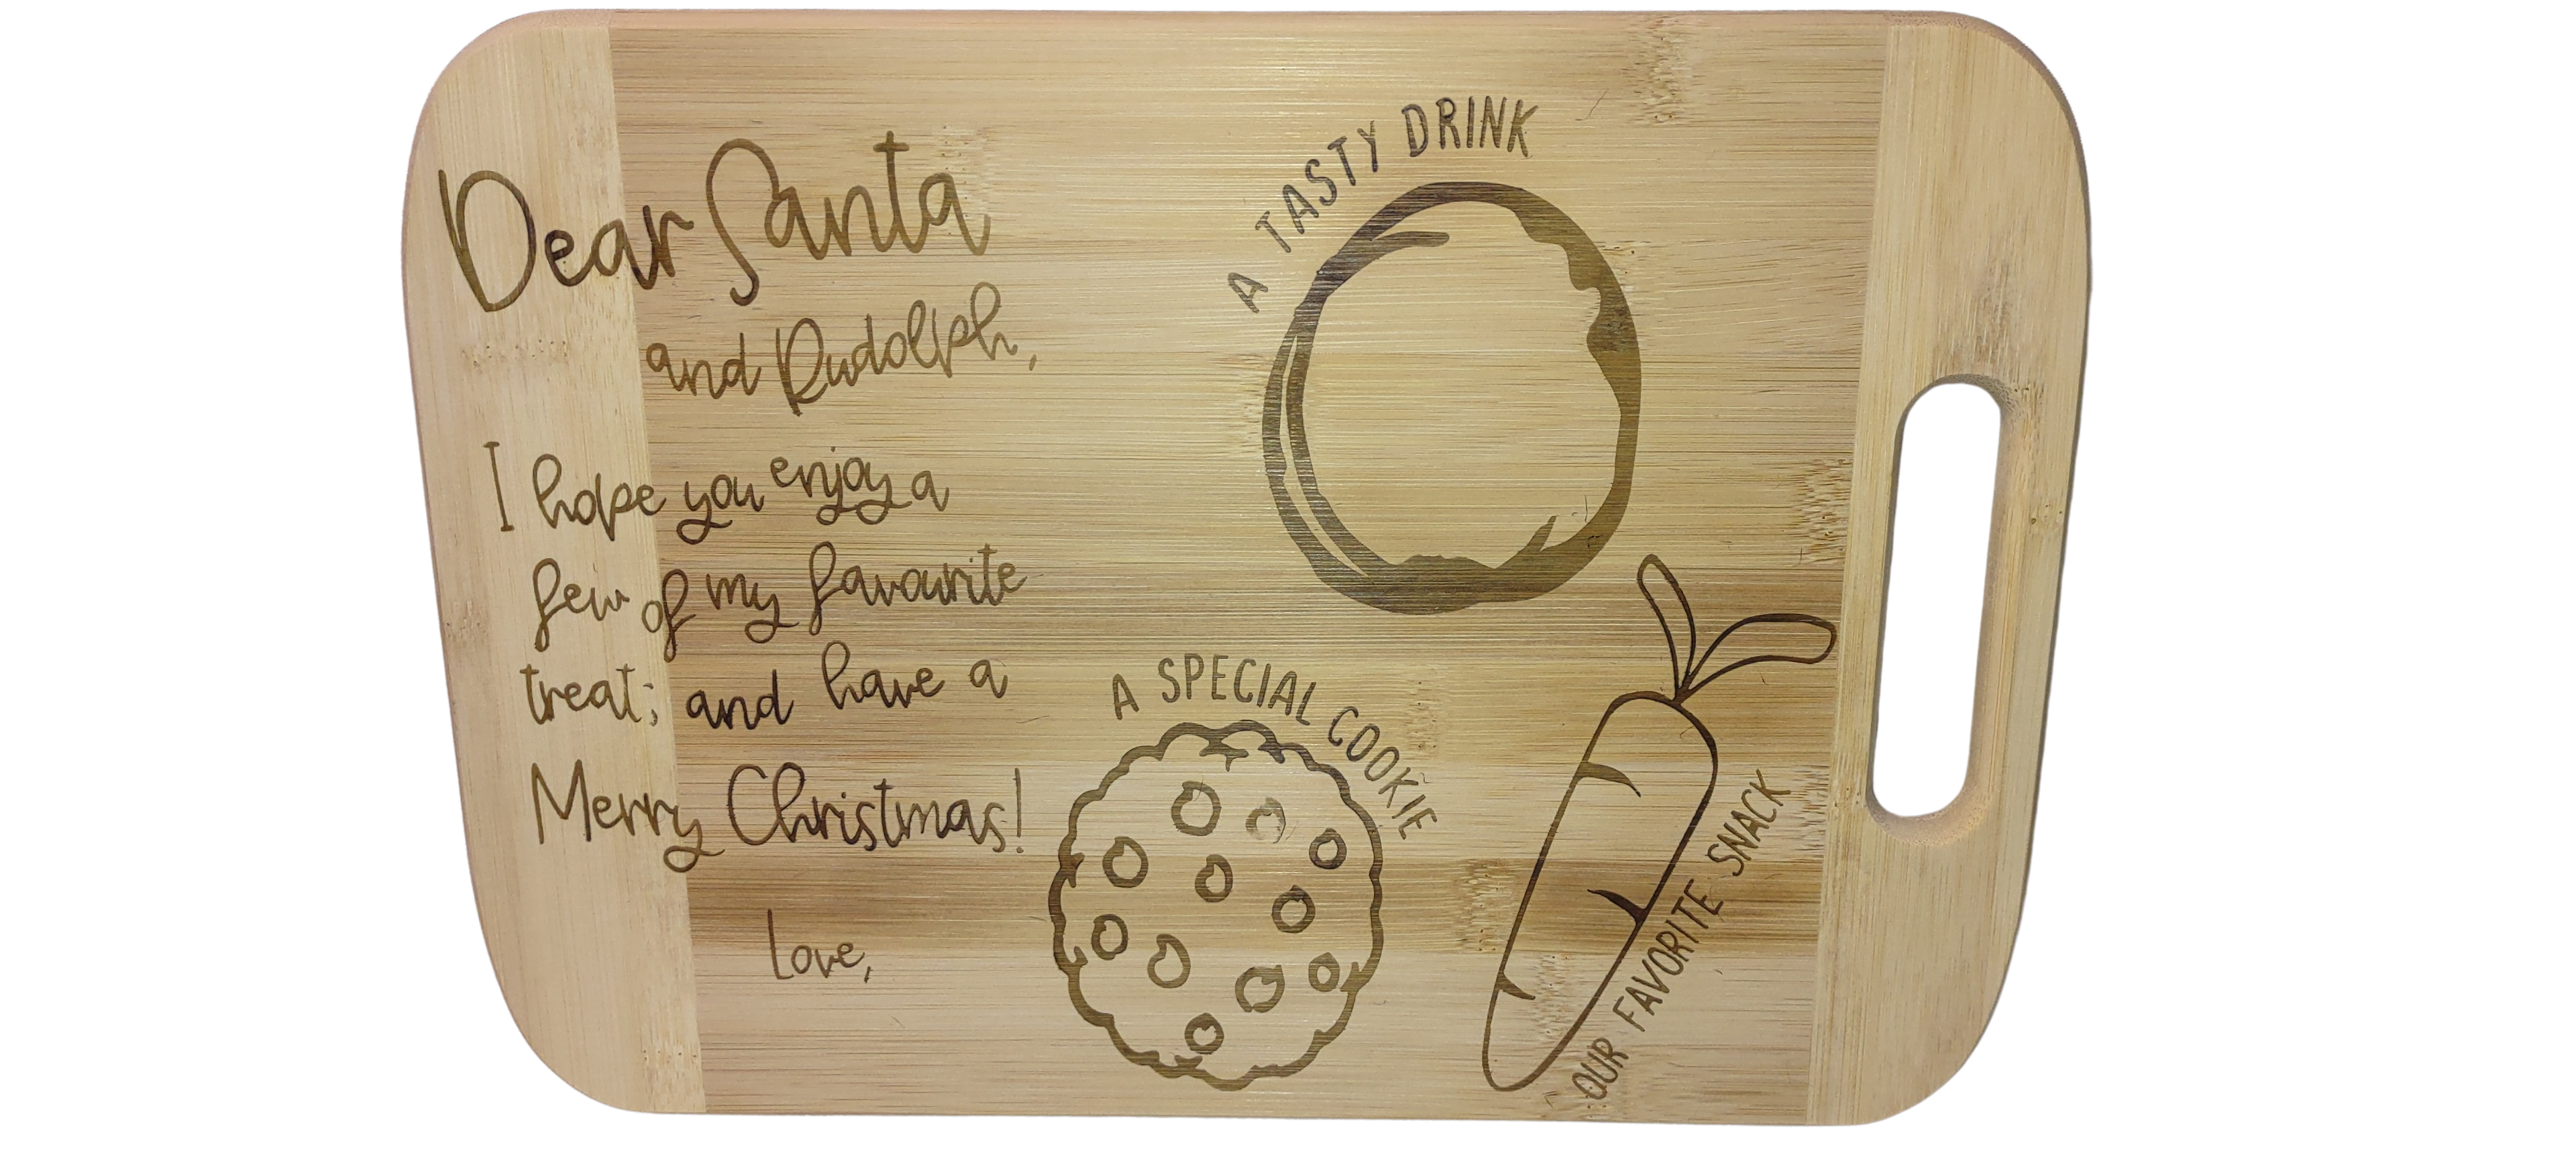 Dear Santa
and Rudolph,
I hope you enjoy a
few of my favourite
treat; and have a
Merry Christmas!
Love,
A TASTY DRINK
A SPECIAL COOKIE
OUR FAVORITE SNACK